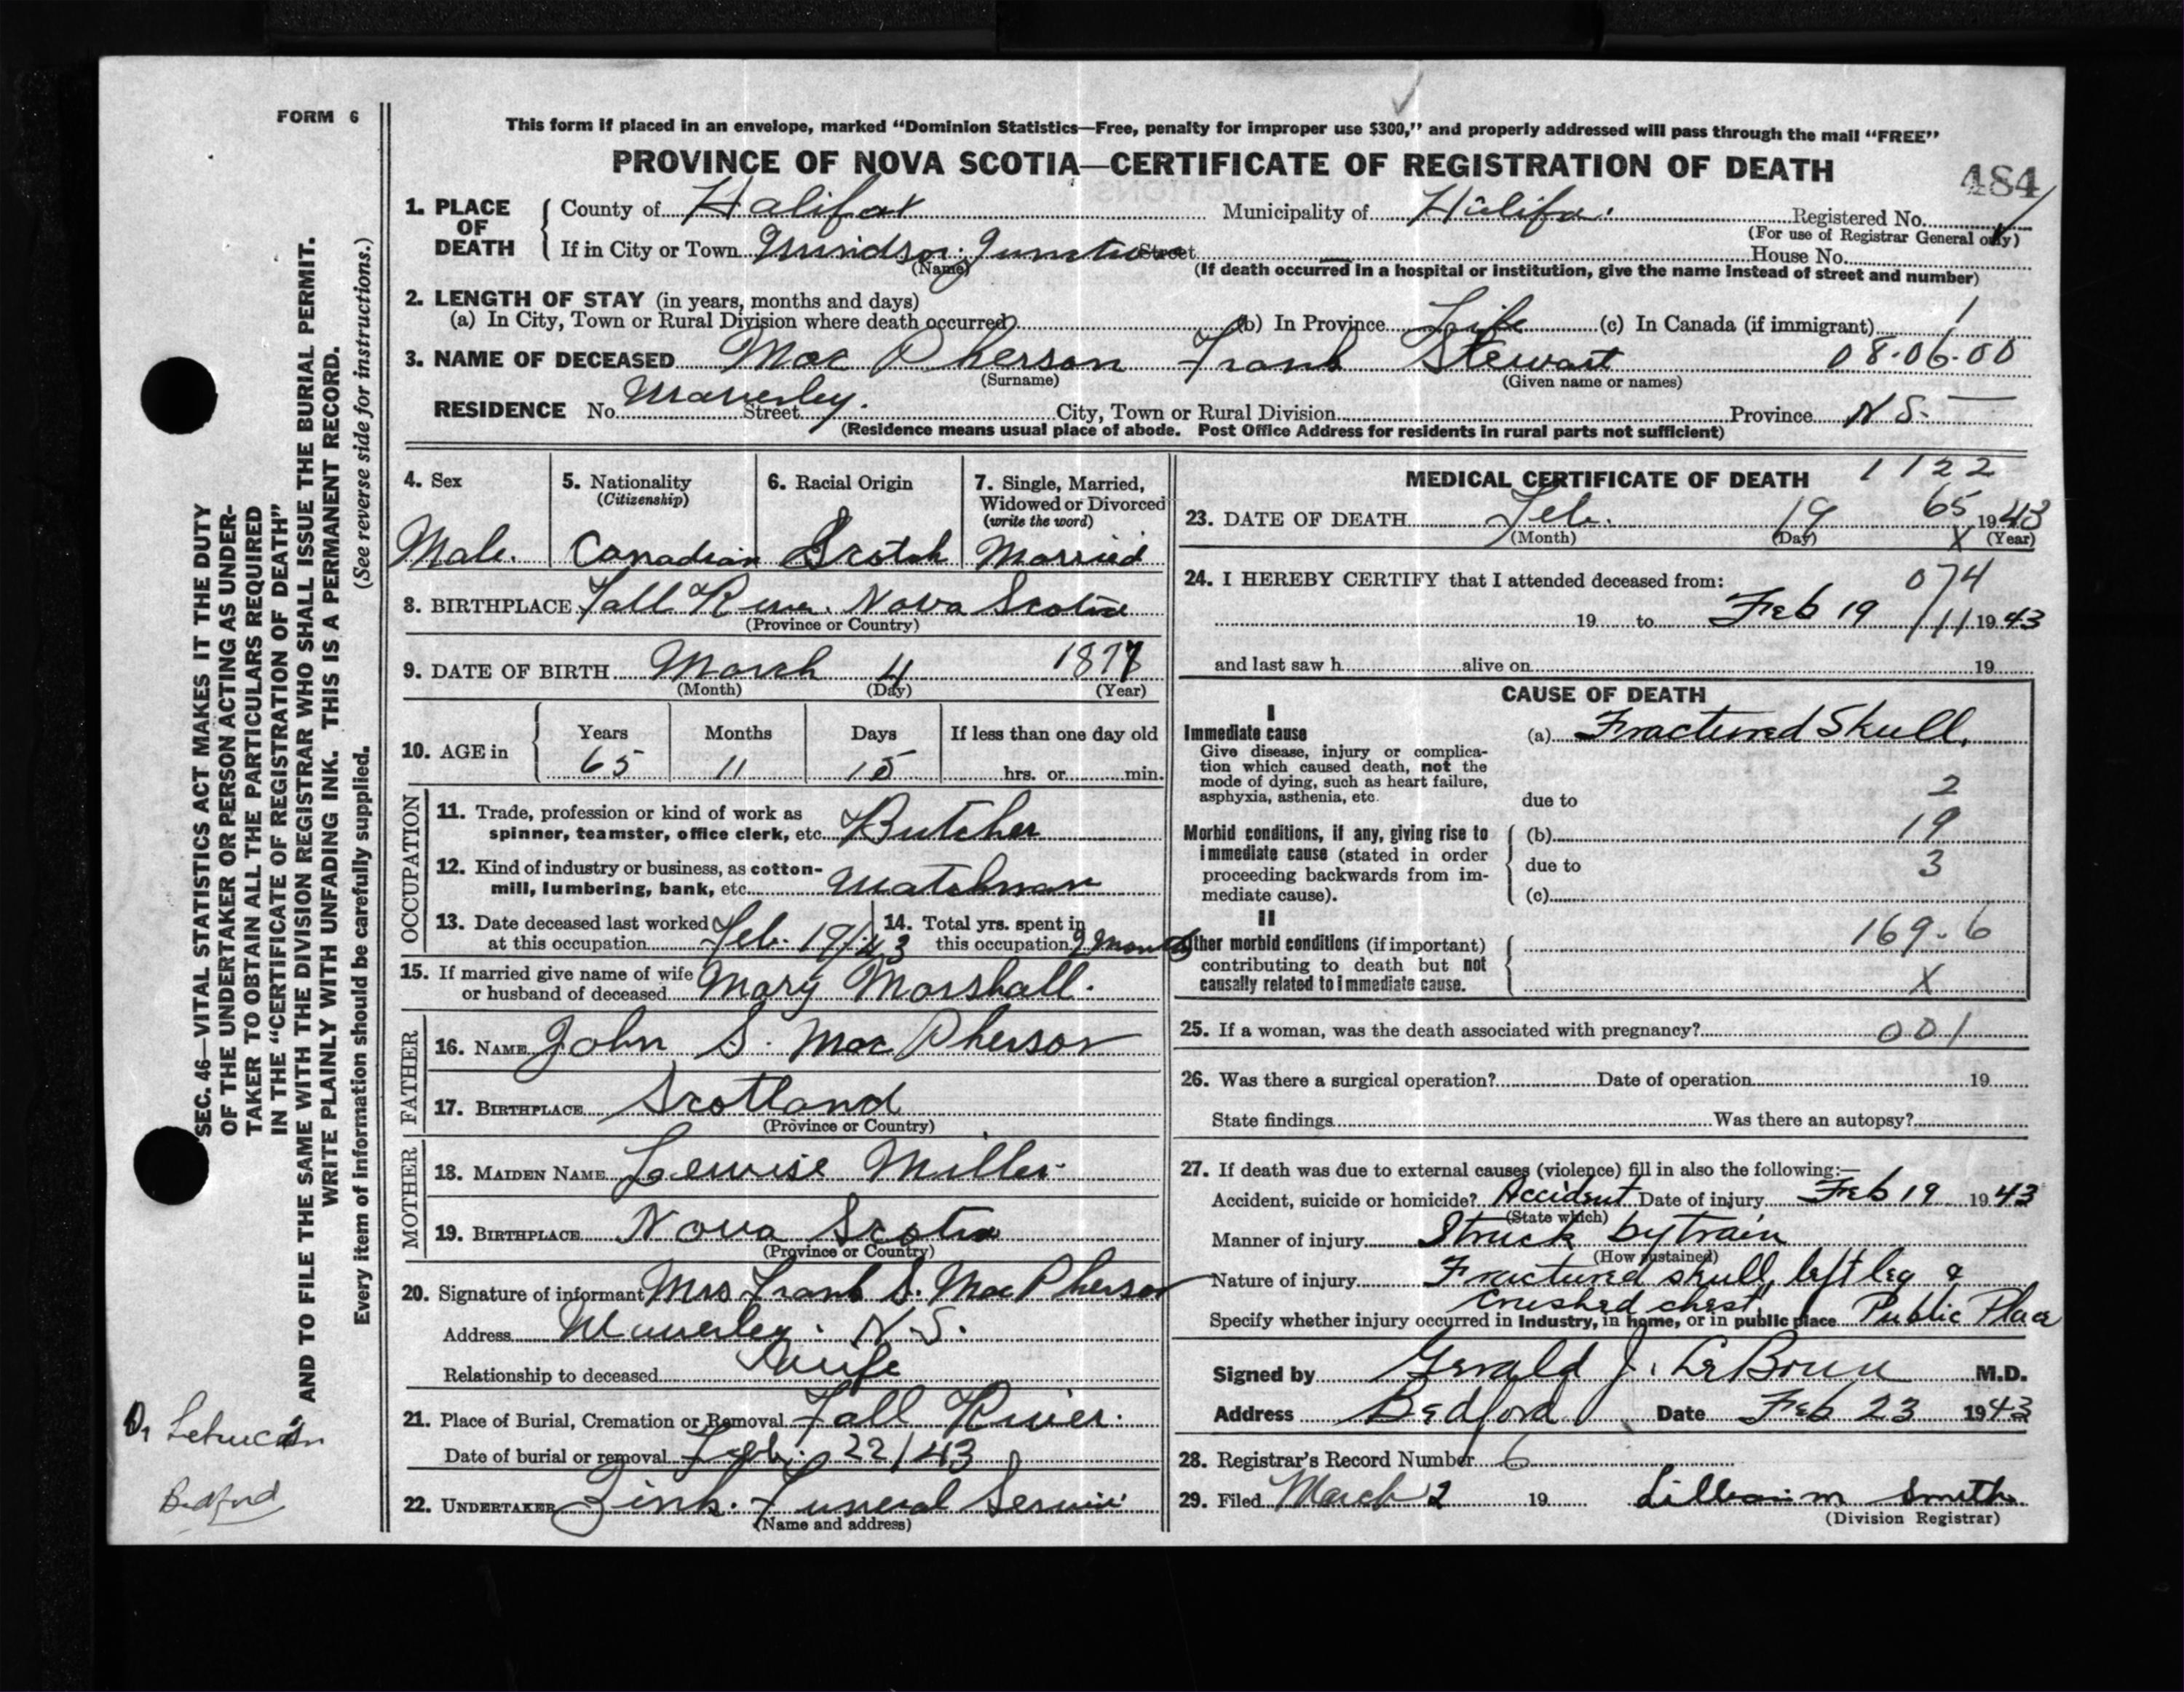 FORM 6
This form if placed in an envelope, marked "Dominion Statistics—Free, penalty for improper use $300," and properly addressed will pass through the mail "FREE"
PROVINCE OF NOVA SCOTIA—CERTIFICATE OF REGISTRATION OF DEATH
484
1. PLACE OF DEATH
County of Halifax Municipality of Halifax Registered No.
(For use of Registrar General only)
If in City or Town Windsor Junction Street House No.
(Name) (If death occurred in a hospital or institution, give the name instead of street and number)
2. LENGTH OF STAY (in years, months and days)
(a) In City, Town or Rural Division where death occurred (b) In Province Life (c) In Canada (if immigrant) 1
3. NAME OF DECEASED Mac Pherson Frank Stewart 08-06-00
(Surname) (Given name or names)
RESIDENCE No. Waverley. Street City, Town or Rural Division Province N.S.
(Residence means usual place of abode. Post Office Address for residents in rural parts not sufficient)
4. Sex
Male.
5. Nationality
(Citizenship)
Canadian
6. Racial Origin
Scotch
7. Single, Married,
Widowed or Divorced
(write the word)
Married
8. BIRTHPLACE Fall River. Nova Scotia
(Province or Country)
9. DATE OF BIRTH March 4 1877
(Month) (Day) (Year)
10. AGE in
Years Months Days If less than one day old
65 11 15 hrs. or min.
OCCUPATION
11. Trade, profession or kind of work as
spinner, teamster, office clerk, etc. Butcher
12. Kind of industry or business, as cotton-
mill, lumbering, bank, etc. Watchman
13. Date deceased last worked
at this occupation Feb. 19/43
14. Total yrs. spent in
this occupation 9 Months
15. If married give name of wife
or husband of deceased Mary Marshall.
FATHER
16. NAME John S. Mac Pherson
17. BIRTHPLACE Scotland
(Province or Country)
MOTHER
18. MAIDEN NAME Lewise Miller
19. BIRTHPLACE Nova Scotia
(Province or Country)
20. Signature of informant Mrs Frank S. Mac Pherson
Address Waverley. N.S.
Relationship to deceased wife
21. Place of Burial, Cremation or Removal Fall River.
Date of burial or removal Feb. 22/43
22. UNDERTAKER Zink. Funeral Service
(Name and address)
MEDICAL CERTIFICATE OF DEATH 1122
65
23. DATE OF DEATH Feb. 19 1943
(Month) (Day) X (Year)
24. I HEREBY CERTIFY that I attended deceased from: 074
19 to Feb 19 111 1943
and last saw h alive on 19
CAUSE OF DEATH
I
Immediate cause
Give disease, injury or complica-
tion which caused death, not the
mode of dying, such as heart failure,
asphyxia, asthenia, etc.
(a) Fractured Skull.
2
due to
Morbid conditions, if any, giving rise to
immediate cause (stated in order
proceeding backwards from im-
mediate cause).
(b) 19
due to 3
(c)
II
Other morbid conditions (if important)
contributing to death but not
causally related to immediate cause.
169-6
X
25. If a woman, was the death associated with pregnancy? 001
26. Was there a surgical operation? Date of operation 19
State findings Was there an autopsy?
27. If death was due to external causes (violence) fill in also the following:—
Accident, suicide or homicide? Accident Date of injury Feb 19 1943
(State which)
Manner of injury Struck by train
(How sustained)
Nature of injury Fractured skull, left leg &
crushed chest
Specify whether injury occurred in industry, in home, or in public place Public Place
Signed by Gerald J. LeBrun M.D.
Address Bedford Date Feb 23 1943
28. Registrar's Record Number 6
29. Filed March 2 19 Lillian M Smith
(Division Registrar)
SEC. 46—VITAL STATISTICS ACT MAKES IT THE DUTY
OF THE UNDERTAKER OR PERSON ACTING AS UNDER-
TAKER TO OBTAIN ALL THE PARTICULARS REQUIRED
IN THE "CERTIFICATE OF REGISTRATION OF DEATH"
AND TO FILE THE SAME WITH THE DIVISION REGISTRAR WHO SHALL ISSUE THE BURIAL PERMIT.
WRITE PLAINLY WITH UNFADING INK. THIS IS A PERMANENT RECORD.
Every item of information should be carefully supplied. (See reverse side for instructions.)
Bedford